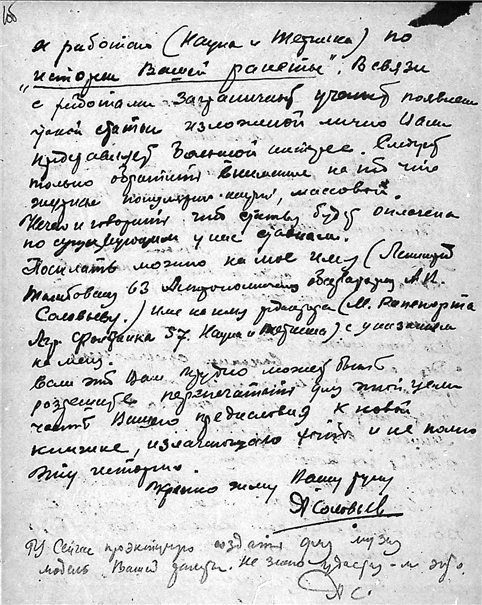 я работаю (Наука и Техника) по
"истории Вашей ракеты". В связи
с работами заграничных ученых появление
такой статьи изложенной лично Вами
представляет большой интерес. Следует
только обратить внимание на то что
журнал популярно-научн, массовый.
Нечего и говорить что статья будет оплачена
по существующим у нас ставкам.
Посылать можно на мое имя (Ленинград
63 Астрономическая Обсерватория А.
Соловьеву.) или на имя редактора (М. Рапепорта
Фонтанка 57. Наука и Техника) с указанием
на меня.
Если это Вам трудно может быть
разрешите перепечатать для этой цели
часть Вашего предисловия к новой
книжке, излагающего хотя и не полно
эту историю.
Крепко жму Вашу руку
АСоловьев
Сейчас проектирую создать для музея
модель Вашей ракеты. Не знаю удастся-ли это.
АС.